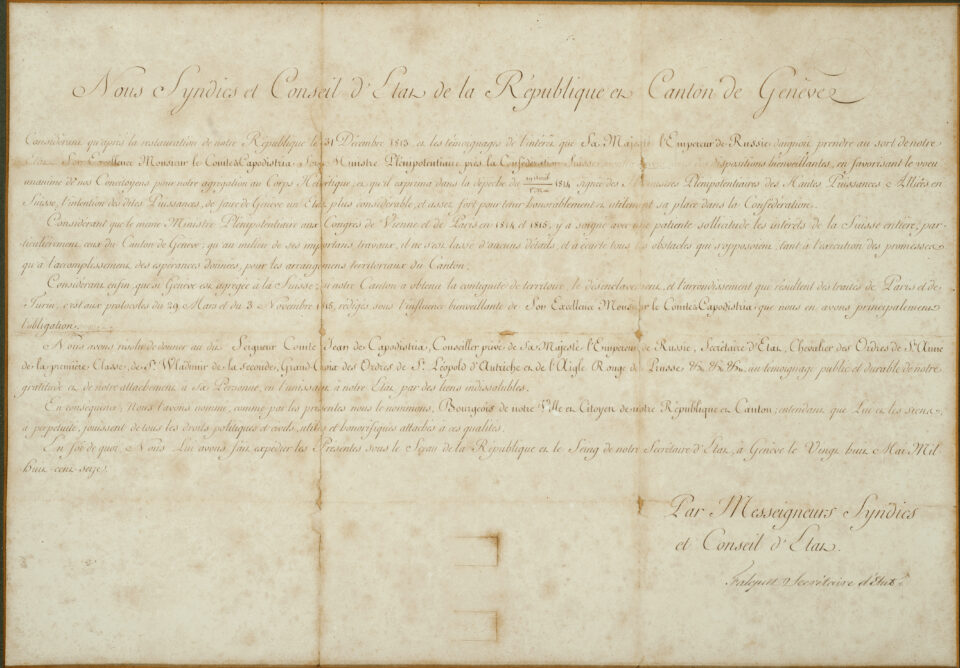 Nous Syndics et Conseil d'Etat de la République et Canton de Genève
Considérant qu'après la restauration de notre République le 31 Décembre 1813, et les témoignages de l'intérêt que Sa Majesté l'Empereur de Russie daignoit prendre au sort de notre
Etat, Son Excellence Monsieur le Comte de Capodistria, Ministre Plénipotentiaire près la Confédération Suisse, dispositions bienveillantes, en favorisant le voeu
unanime de nos Concitoyens pour notre agrégation au Corps Helvétique, et qu'il exprima dans la dépêche du 1814 signée des Ministres Plénipotentiaires des Hautes Puissances Alliées en
Suisse, l'intention des dites Puissances, de faire de Genève un Etat plus considérable, et assez fort pour tenir honorablement et utilement sa place dans la Confédération.
Considérant que le même Ministre Plénipotentiaire aux Congrès de Vienne et de Paris en 1814 et 1815, y a soigné avec une patiente sollicitude les intérêts de la Suisse entière, par-
ticulièrement ceux du Canton de Genève; qu'au milieu de ses importans travaux, il ne s'est lassé d'aucuns détails, et a écarté tous les obstacles qui s'opposoient, tant à l'exécution des promesses
qu'à l'accomplissement des espérances données, pour les arrangemens territoriaux du Canton;
Considérant enfin, que si Genève est agrégée à la Suisse, si notre Canton a obtenu la contiguité de territoire, le désenclavement, et l'arrondissement que résultent des traités de Paris et de
Turin, c'est aux protocoles du 29 Mars et du 3 Novembre 1815, rédigés sous l'influence bienveillante de Son Excellence Monsieur le Comte de Capodistria que nous en avons principalement
l'obligation.
Nous avons résolu de donner au dit Seigneur Comte Jean de Capodistria, Conseiller privé de Sa Majesté l'Empereur de Russie, Secrétaire d'Etat, Chevalier des Ordres de Ste Anne
de la première Classe, de St Wladimir de la seconde, Grand Croix des Ordres de St Léopold d'Autriche et de l'Aigle Rouge de Prusse &c. &c. &c. un témoignage public et durable de notre
gratitude et de notre attachement à sa Personne, en l'unissant à notre Etat par des liens indissolubles.
En conséquence, Nous l'avons nommé, comme par les présentes nous le nommons, Bourgeois de notre Ville et Citoyen de notre République et Canton; entendant que Lui et les siens,
à perpétuité, jouissent de tous les droits politiques et civils, utiles et honorifiques attachés à ces qualités.
En foi de quoi, Nous Lui avons fait expédier les Présentes sous le Sceau de la République et le Seing de notre Secrétaire d'Etat, à Genève le Vingt huit Mai Mil
huit cent seize.
Par Messeigneurs Syndics
et Conseil d'Etat.
Falquet Secrétaire d'Etat